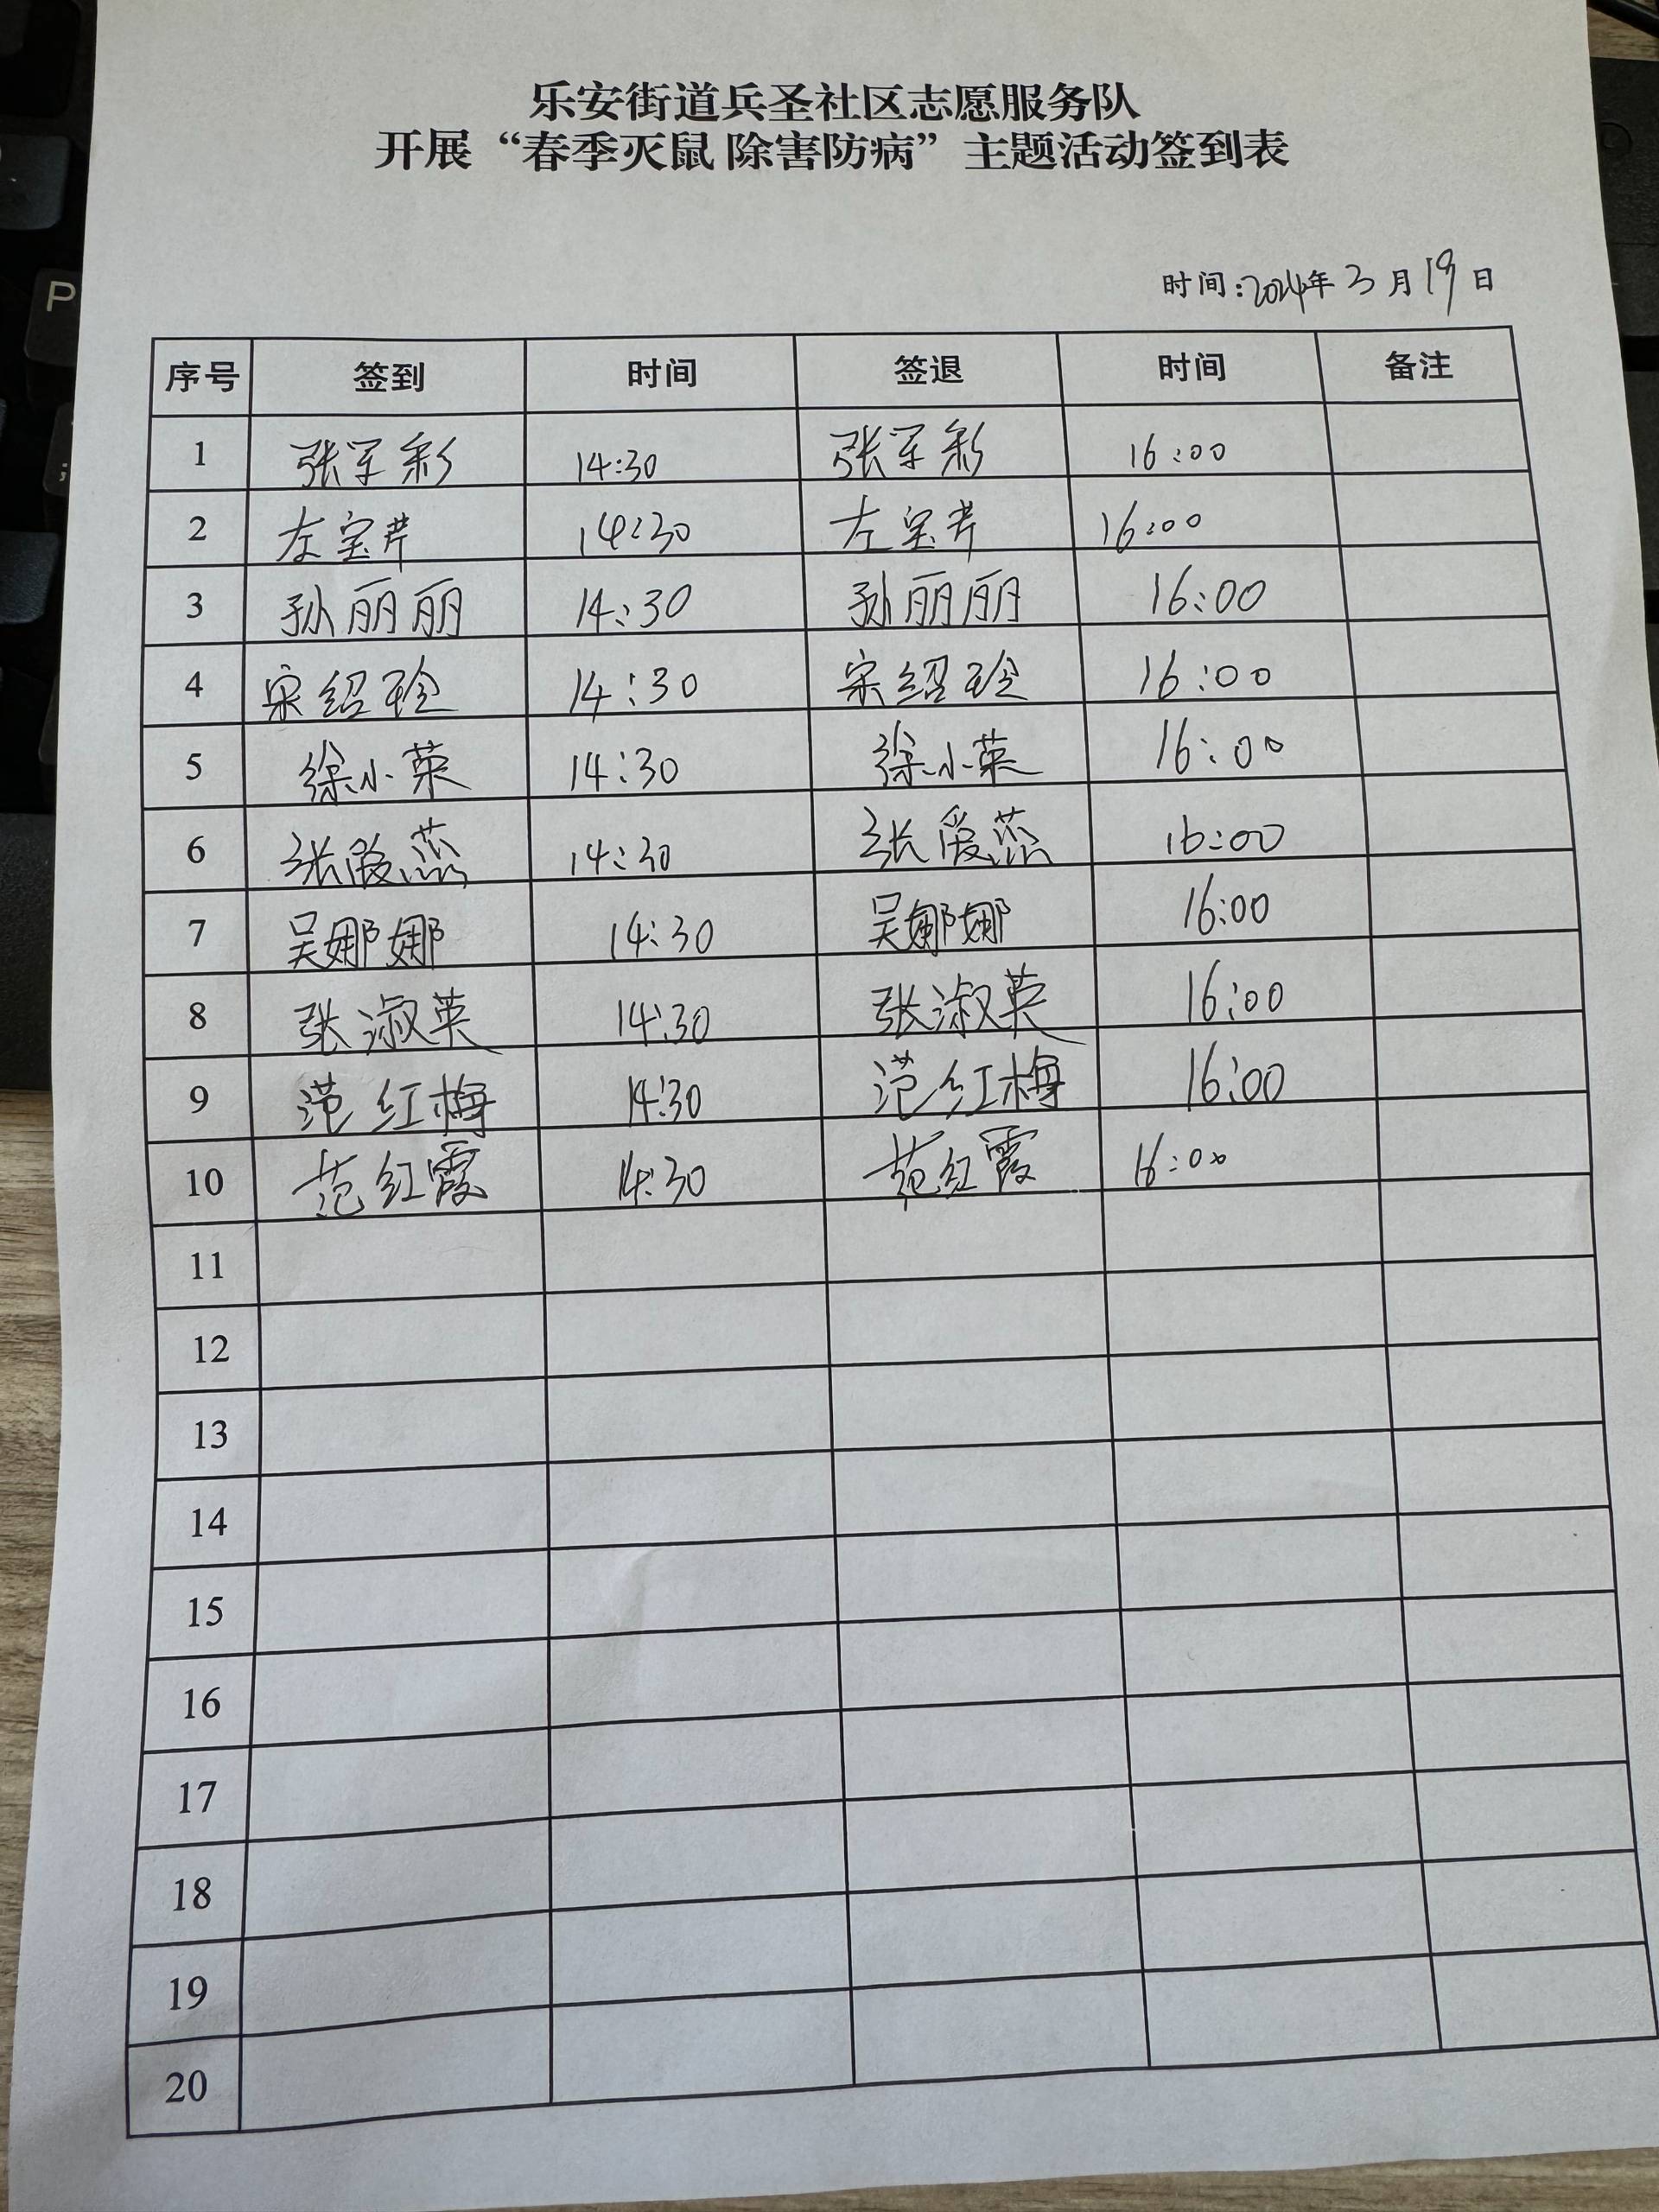 乐安街道兵圣社区志愿服务队
开展“春季灭鼠 除害防病”主题活动签到表
时间:2024年3月19日
序号 签到 时间 签退 时间 备注
1 张军彩 14:30 张军彩 16:00
2 左宝芹 14:30 左宝芹 16:00
3 孙丽丽 14:30 孙丽丽 16:00
4 宋绍玲 14:30 宋绍玲 16:00
5 徐小荣 14:30 徐小荣 16:00
6 张爱蕊 14:30 张爱蕊 16:00
7 吴娜娜 14:30 吴娜娜 16:00
8 张淑英 14:30 张淑英 16:00
9 范红梅 14:30 范红梅 16:00
10 范红霞 14:30 范红霞 16:00
11
12
13
14
15
16
17
18
19
20
P